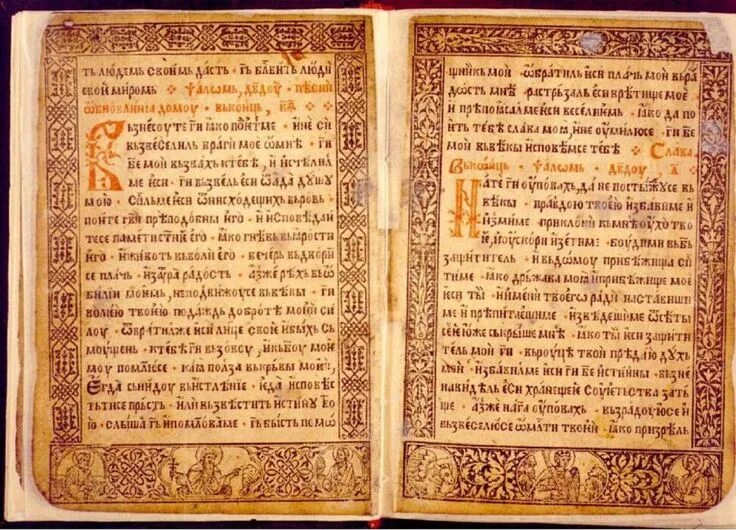 ть людемь своимь дасть · гь бл҃вить люди
свое миромь · ѱаломь, дв҃доу · пѣсни
ѡбновлѥниꙗ домоу · вьконць, к҃ѳ
Вьзнесоу те г҃и ꙗко поѥтме · и не си
вьзвеселиль враги мое ѡ мнѣ · г҃и
б҃е мой вьзвахь к тебѣ, и исцѣлил
ме ѥси · г҃и вьзвель ѥси ѿ ада доушоу
мою · сп҃аль ме ѥси ѿ нисходещихь вь ровь ·
поите г҃ви прѣподобны ѥго · и исповѣдаи
тесе памети с҃тние ѥго · ꙗко гнѣвь вь ꙗрости
ѥго · и животь вь воли ѥго · вечерь вьдвори
се плачь · и заоутра радость · азже рѣхь вь ѡ
билии моѥмь, не подвижоусе вь вѣкы · г҃и
волѥю твоѥю подаждь добротѣ моѥи си
лоу · ѿвратил же ѥси лице своѥ и быхь сь
моущень · к тебѣ г҃и вьзовоу, и кь б҃оу моѥ
моу помолюсе · каꙗ полза вь крьви моѥи,
Ѥгда сьнидоу вь истлѣниѥ · ѥда исповѣс
тьтисе прьсть · или вьзвѣстить истиноу тво
ю · слыша г҃ь и помлова ме · г҃ь бысть помо
щникь мой · ѡбратиль ѥси плачь мой вь ра
дость мнѣ · растрьзаль ѥси врѣтище моѥ
и прѣпоꙗса ме ѥси веселиѥмь · ꙗко да по
ить тебѣ слава моꙗ, и не оумилюсе · г҃и б҃е
мой вь вѣкы исповѣмсе тебѣ · Слава
вьконць · ѱаломь · дв҃доу · л҃
На те г҃и оуповахь, да не постыжоусе вь
вѣкы · правдою твоѥю избави ме и
изми ме · приклони кь мнѣ оухо тво
ѥ, и оускори изети ме · боуди ми вь б҃ь
защитител҃ь · и вь домоу прибѣжища сп҃
ти ме · ꙗко дрьжава моꙗ и прибѣжище моѥ
ѥси ты · и имени твоѥго ради наставиши
ме и прѣпитаѥши ме · изведеши ме ѿ сѣты
сеѥ юже ськрыше мнѣ · ꙗко ты ѥси защити
тель мой г҃и · вь роуцѣ твои прѣдаю доухь
мой · избавил ме ѥси г҃и б҃е истинны · вьзне
навидѣль ѥси хранещеѥ соуѥтьства зать
ще · азже на г҃а оуповахь · вьзрадоуюсе и
вьзвеселюсе ѡ мл҃ти твоѥи · ꙗко призрѣль